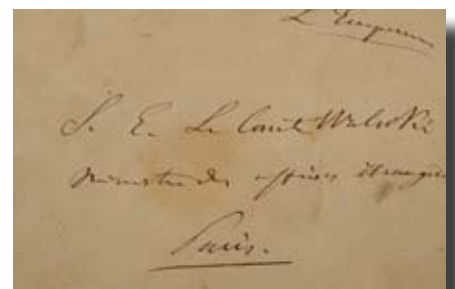 L'Empereur
S. E. Le Comte Walewski
Ministre des affaires étrangères
Paris.